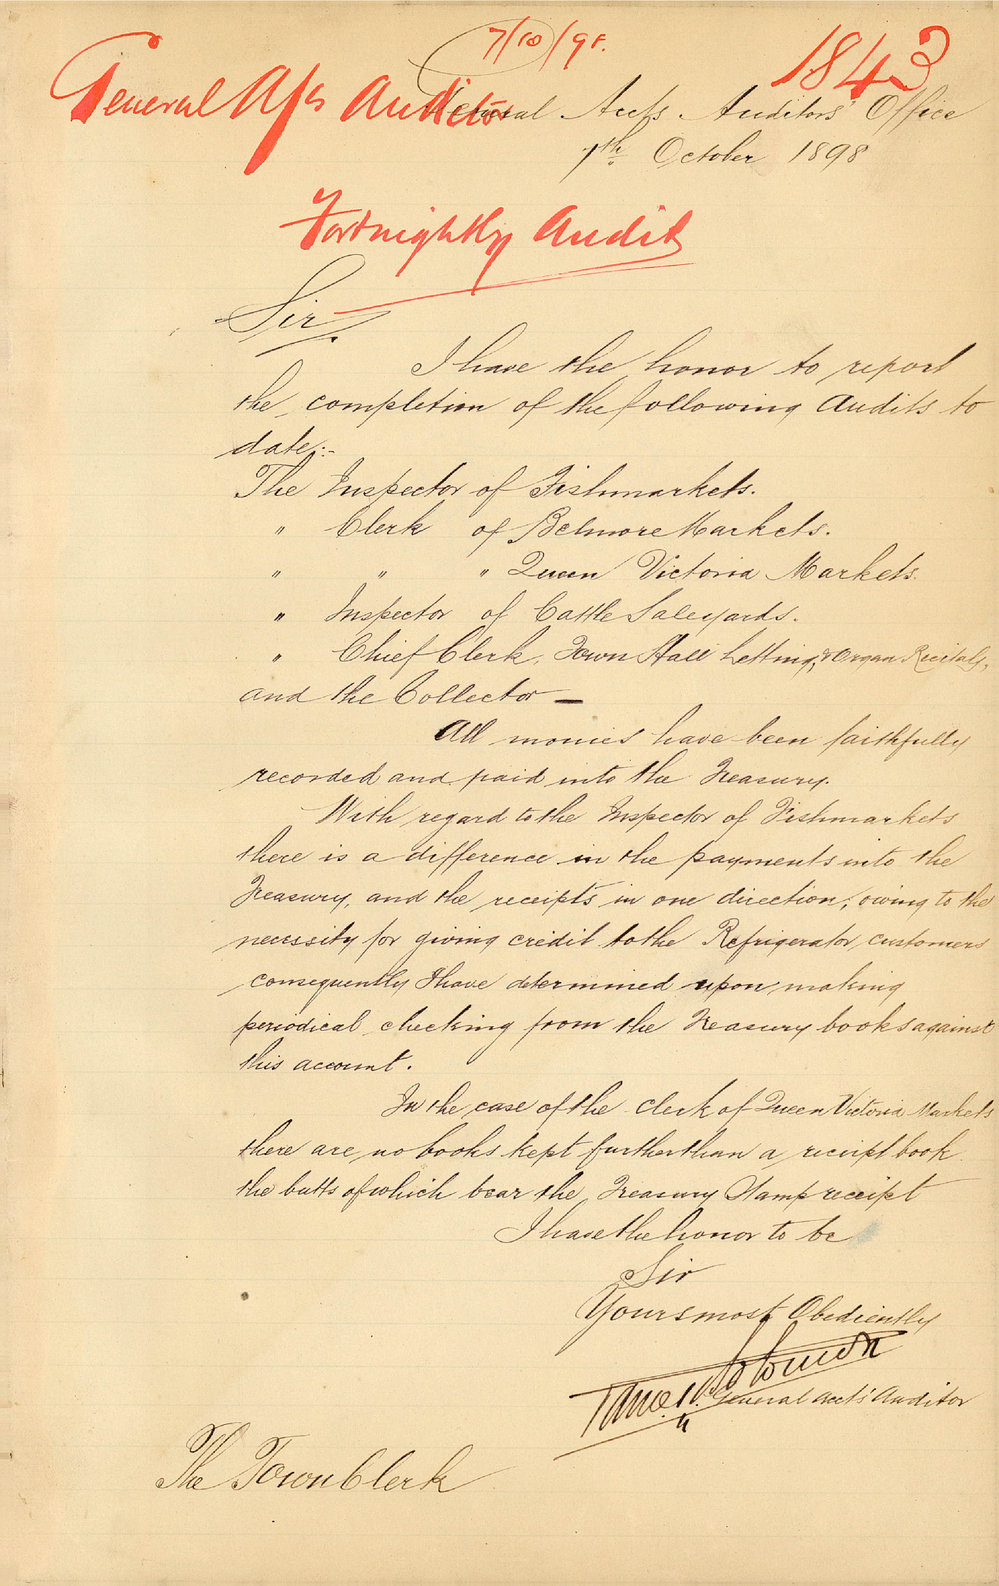 7/10/98.
1843
General A/cs Auditor
General Accts Auditors' Office
7th October 1898
Fortnightly Audit
Sir,
I have the honor to report
the completion of the following Audits to
date:-
The Inspector of Fishmarkets.
" Clerk of Belmore Markets.
" " " Queen Victoria Markets.
" Inspector of Cattle Saleyards.
" Chief Clerk, Town Hall Letting, & Organ Recitals,
and the Collector —
All monies have been faithfully
recorded and paid into the Treasury.
With regard to the Inspector of Fishmarkets
there is a difference in the payments into the
Treasury, and the receipts in one direction, owing to the
necessity for giving credit to the Refrigerator customers
consequently I have determined upon making
periodical checking from the Treasury books against
this account.
In the case of the clerk of Queen Victoria Markets
there are no books kept further than a receipt book
the butts of which bear the Treasury Stamp receipt
I have the honor to be
Sir
Yours most Obediently
Solomon
General Accts' Auditor
The Town Clerk